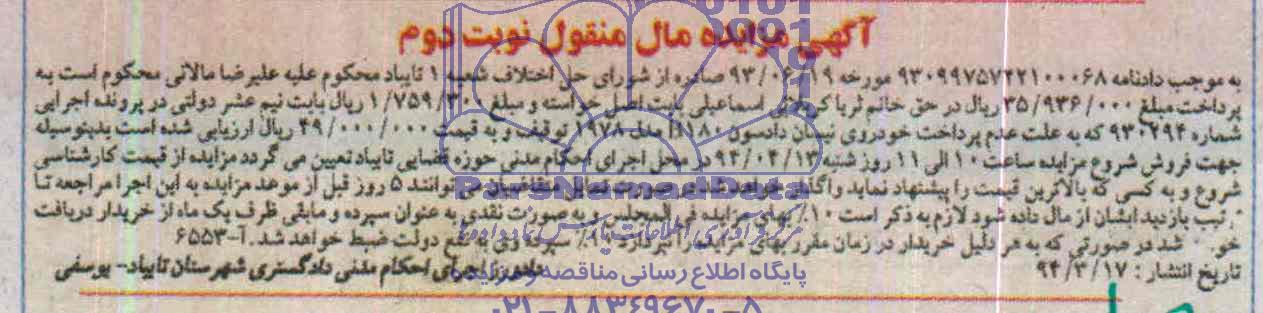 آگهی مزایده مال منقول نوبت دوم
به موجب دادنامه ۹۳۰۹۹۷۵۷۲۲۱۰۰۰۶۸ مورخه ۹۳/۰۶/۱۹ صادره از شورای حل اختلاف شعبه ۱ تایباد محکوم علیه علیرضا مالائی محکوم است به
پرداخت مبلغ ۳۵/۹۳۶/۰۰۰ ریال در حق خانم ثریا کربلائی اسماعیلی بابت اصل خواسته و مبلغ ۱/۷۵۹/۳۰۰ ریال بابت نیم عشر دولتی در پرونده اجرایی
شماره ۹۳۰۲۹۴ که به علت عدم پرداخت خودروی نیسان دادسون مدل ۱۹۷۸ توقیف و به قیمت ۴۹/۰۰۰/۰۰۰ ریال ارزیابی شده است بدینوسیله
جهت فروش شروع مزایده ساعت ۱۰ الی ۱۱ روز شنبه ۹۴/۰۴/۱۳ در محل اجرای احکام مدنی حوزه قضایی تایباد تعیین می گردد مزایده از قیمت کارشناسی
شروع و به کسی که بالاترین قیمت را پیشنهاد نماید واگذار خواهد شد در صورت تمایل متقاضیان می توانند ۵ روز قبل از موعد مزایده به این اجرا مراجعه تا
ترتیب بازدید ایشان از مال داده شود لازم به ذکر است ۱۰٪ بهای مزایده فی المجلس و به صورت نقدی به عنوان سپرده و مابقی ظرف یک ماه از خریدار دریافت
شد در صورتی که به هر دلیل خریدار در زمان مقرر بهای مزایده را نپردازد سپرده وی به نفع دولت ضبط خواهد شد. آ-۶۵۵۳
تاریخ انتشار: ۹۴/۳/۱۷
دادورز اجرای احکام مدنی دادگستری شهرستان تایباد- یوسفی
ParsNamadData
مرکز فرآوری اطلاعات پارس نماد داده ها
پایگاه اطلاع رسانی مناقصه و مزایده
۰۲۱-۸۸۳۴۹۶۷۰-۵